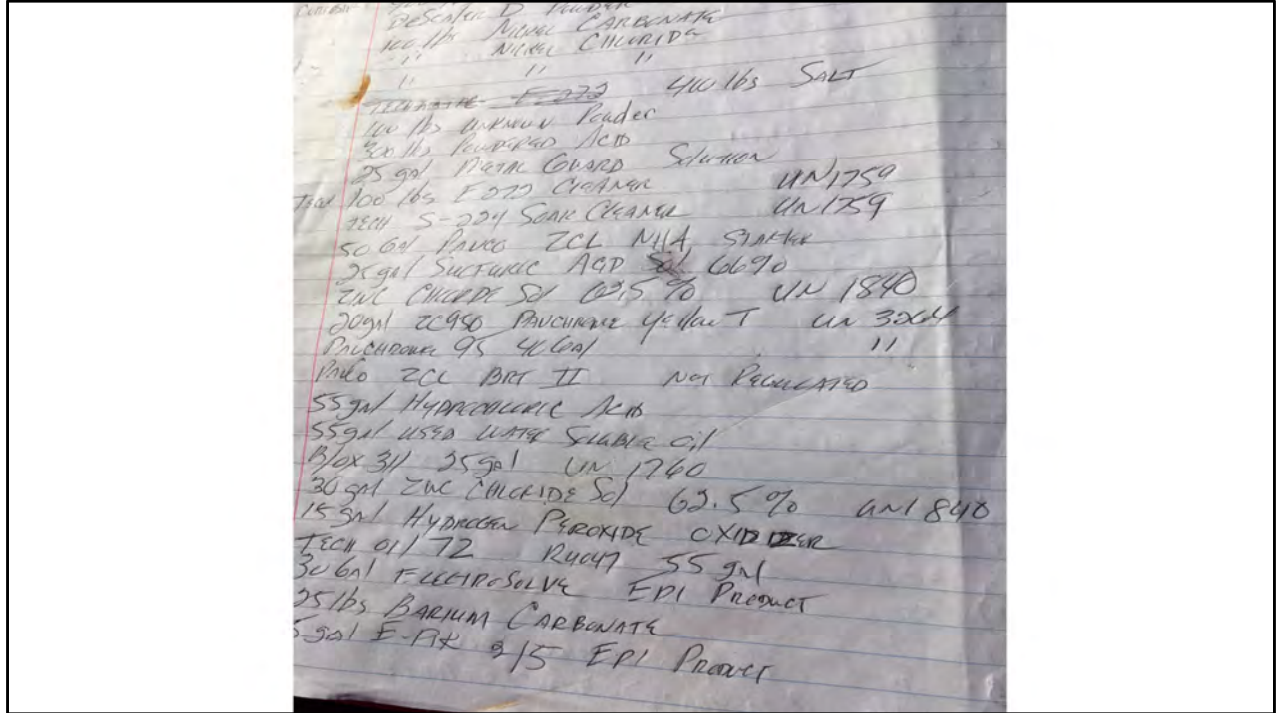 DeScaler D Powder
100 lbs Nickel CARBONATE
" Nickel CHLORIDE
" " "
F-272 400 lbs SALT
100 lbs UNKNOWN Powder
300 lbs POWDERED ACID
25 gal METAL GUARD Solution
TECH 100 lbs E272 CLEANER UN1759
TECH S-224 SOAK CLEANER UN1759
50 Gal PAVCO ZCL NHA STARTER
25 gal SULFURIC ACID Sol 66%
ZINC CHLORIDE Sol 62.5% UN 1840
20 gal ZC950 PAVCHROME Yellow T UN 3264
PAVCHROME 95 40 Gal "
PAVCO ZCL BRT II NOT REGULATED
55 gal HYDROCHLORIC ACID
55 gal USED WATER SOLUBLE oil
25 gal UN 1760
30 gal ZINC CHLORIDE Sol 62.5% UN1840
15 gal HYDROGEN PEROXIDE OXIDIZER
TECH 01/72 R4047 55 gal
30 Gal ELECTROSOLVE EPI PRODUCT
25 lbs BARIUM CARBONATE
5 gal E-PIK 215 EPI PRODUCT